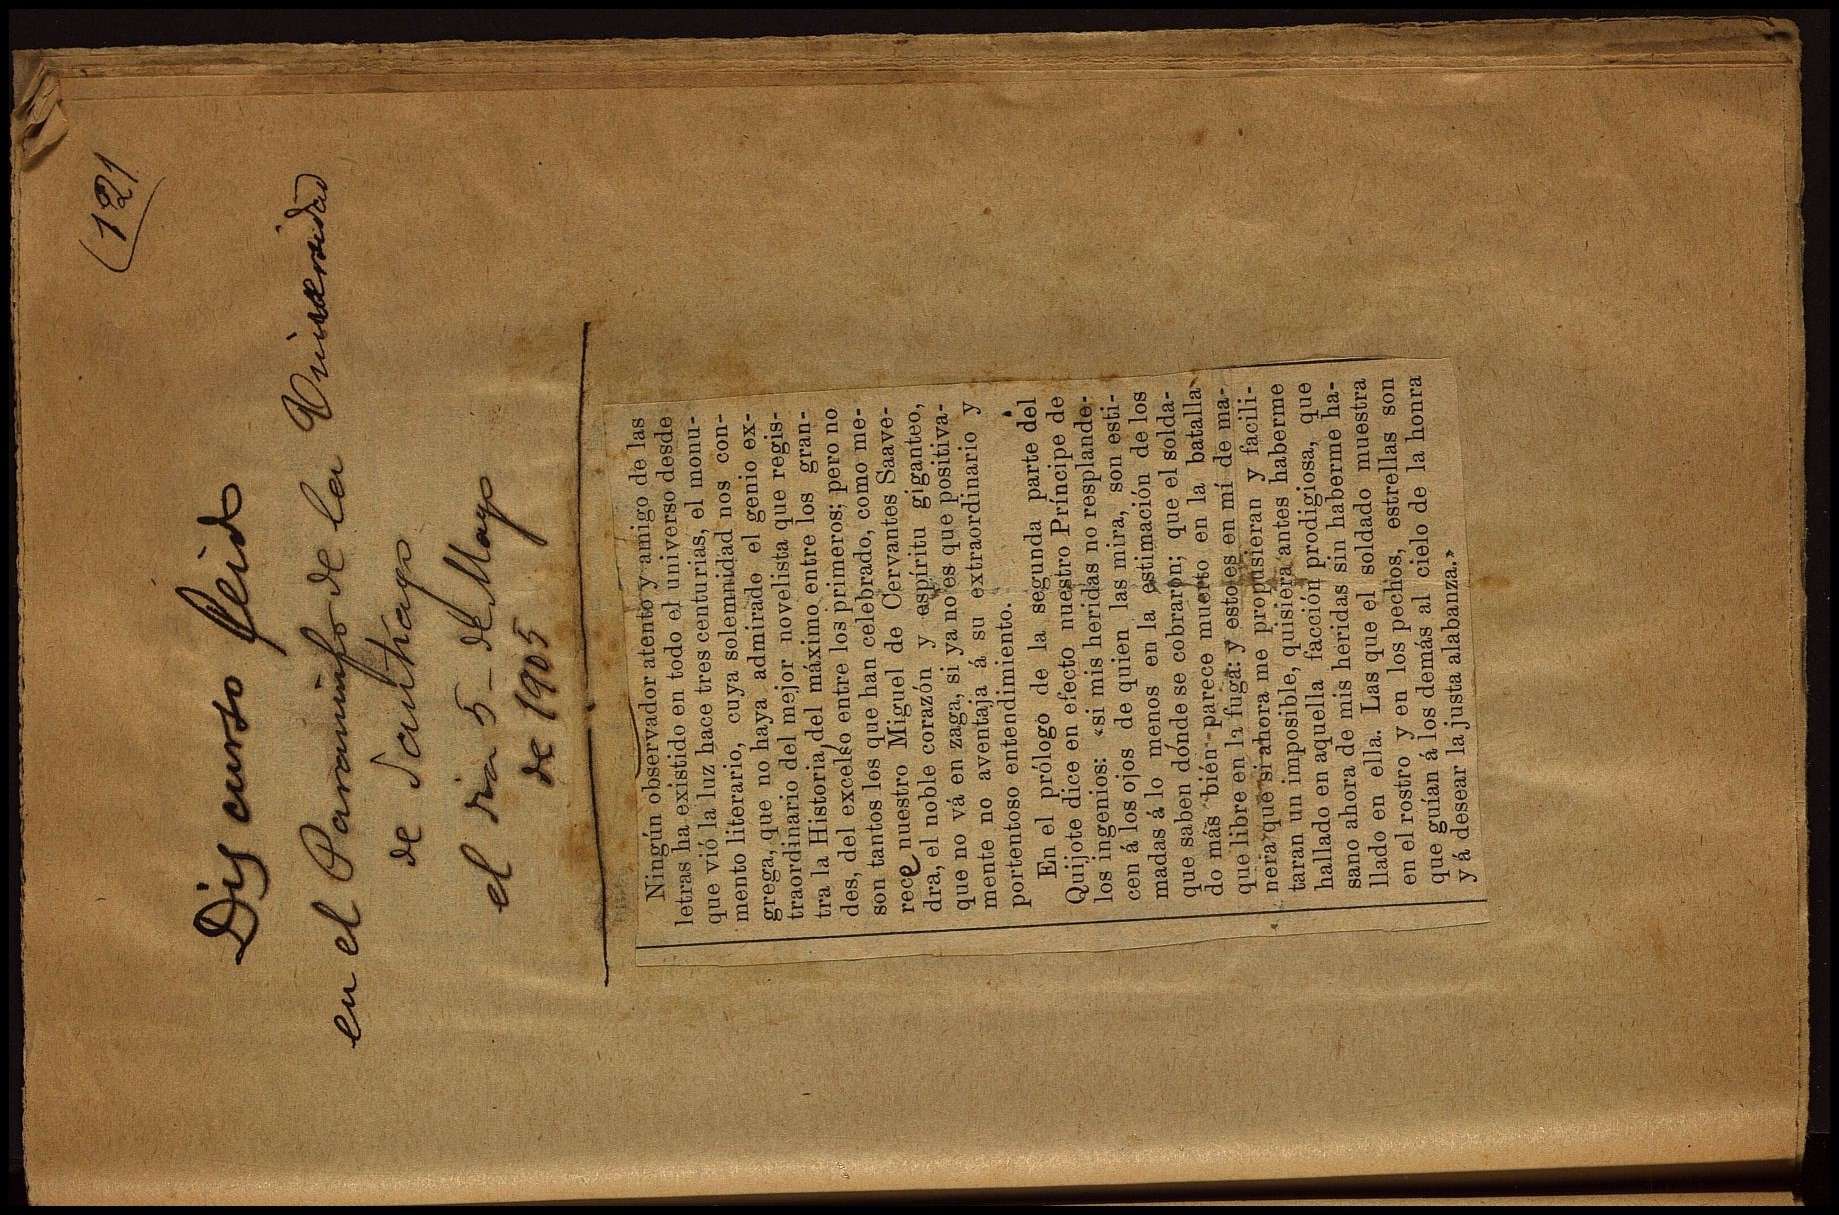 (121
Discurso leido
en el Paraninfo de la Universidad
de Santiago
el dia 5 - de Mayo
de 1905
Ningún observador atento y amigo de las
letras ha existido en todo el universo desde
que vió la luz hace tres centurias, el monu-
mento literario, cuya solemnidad nos con-
grega, que no haya admirado el genio ex-
traordinario del mejor novelista que regis-
tra la Historia, del máximo entre los gran-
des, del excelso entre los primeros; pero no
son tantos los que han celebrado, como me-
rece nuestro Miguel de Cervantes Saave-
dra, el noble corazón y espíritu giganteo,
que no vá en zaga, si ya no es que positiva-
mente no aventaja á su extraordinario y
portentoso entendimiento.
En el prólogo de la segunda parte del
Quijote dice en efecto nuestro Príncipe de
los ingenios: «si mis heridas no resplande-
cen á los ojos de quien las mira, son esti-
madas á lo menos en la estimación de los
que saben dónde se cobraron; que el solda-
do más bién parece muerto en la batalla
que libre en la fuga: y esto es en mí de ma-
nera que si ahora me propusieran y facili-
taran un imposible, quisiera antes haberme
hallado en aquella facción prodigiosa, que
sano ahora de mis heridas sin haberme ha-
llado en ella. Las que el soldado muestra
en el rostro y en los pechos, estrellas son
que guían á los demás al cielo de la honra
y á desear la justa alabanza.»